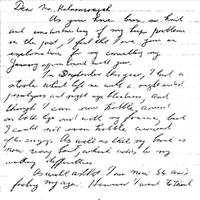 Dear Mr. 
As you have been so kind
and understanding of my problems
in the past I feel that I owe you an
explanation for my cancelling my
January appointment with you.
In September this year, I had a
stroke which left me with a right sided
paralysis and right eye blindness, and
though I can now hobble around
on both legs and with my frame, but
I could not even hobble around
the surgery. As well as that my back is
now very bent, which adds to my
walking difficulties
As well as that I am now 86 and
feeling my age. However I want to thank